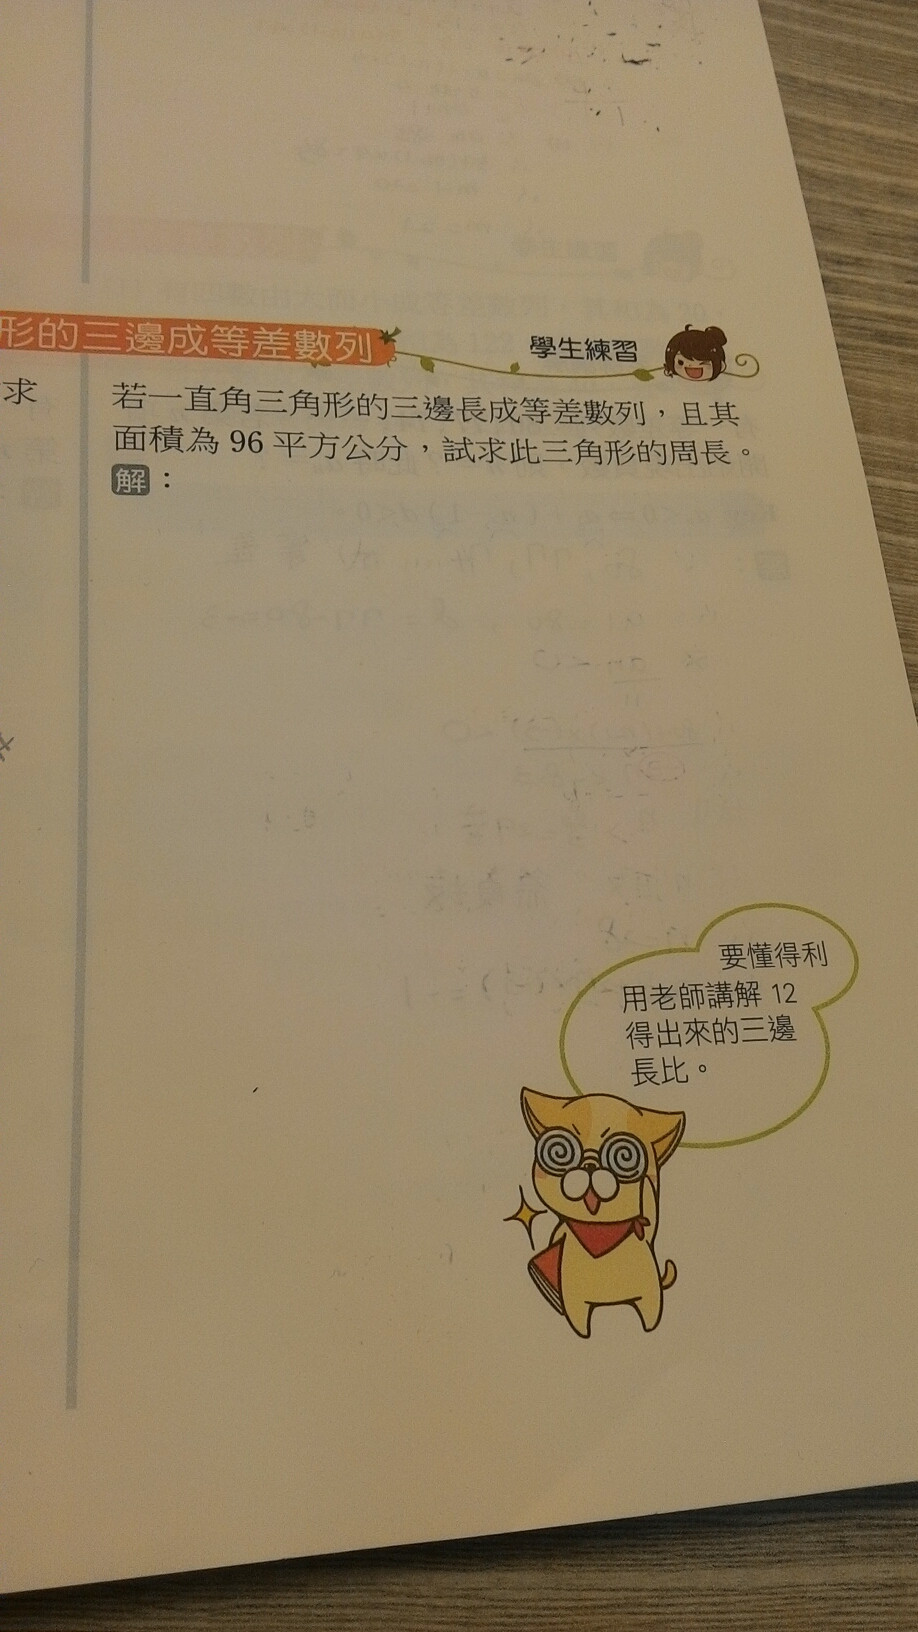 形的三邊成等差數列
學生練習
求
若一直角三角形的三邊長成等差數列，且其
面積為 96 平方公分，試求此三角形的周長。
解：
要懂得利
用老師講解 12
得出來的三邊
長比。